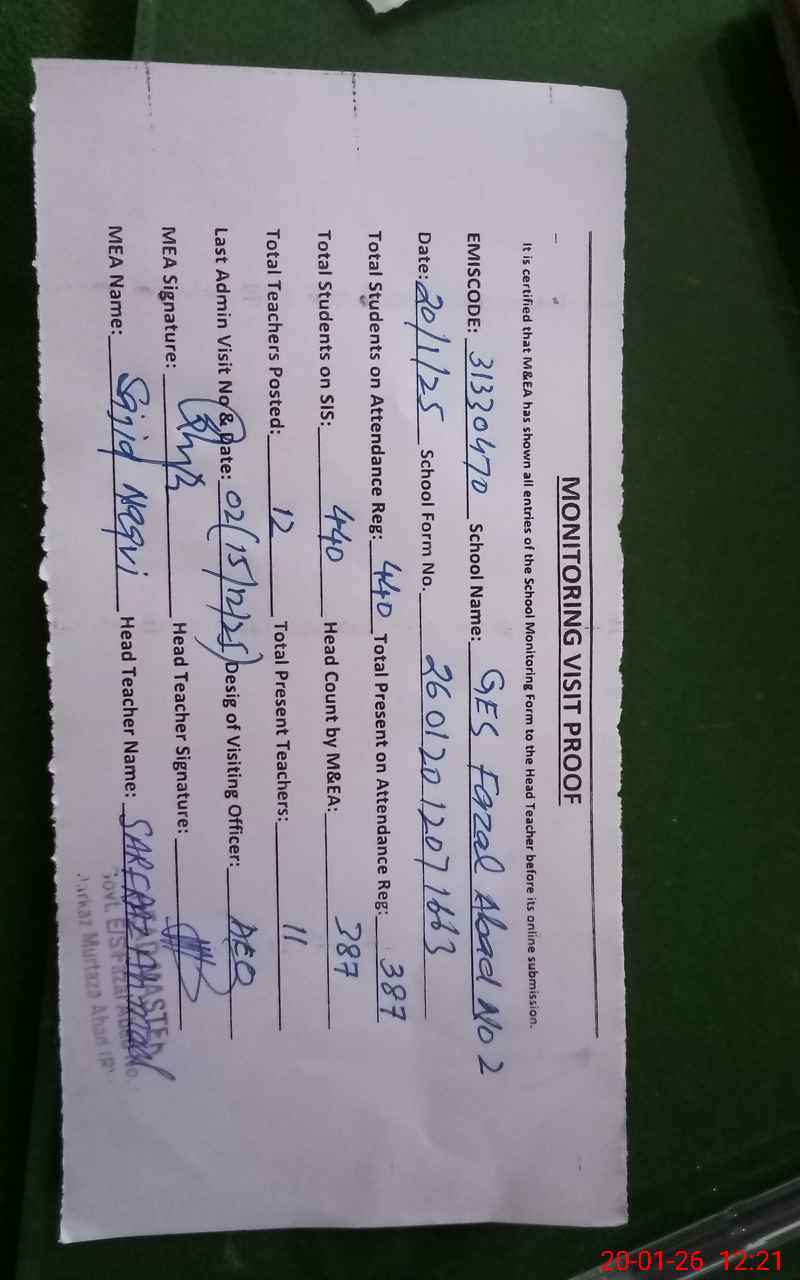 MONITORING VISIT PROOF
It is certified that M&EA has shown all entries of the School Monitoring Form to the Head Teacher before its online submission.
EMISCODE: 31330470 School Name: GES Fazal Abad No 2
Date: 20/1/25 School Form No. 26012012071663
Total Students on Attendance Reg: 440 Total Present on Attendance Reg: 387
Total Students on SIS: 440 Head Count by M&EA: 387
Total Teachers Posted: 12 Total Present Teachers: 11
Last Admin Visit No & Date: 02(15/12/25) Desig of Visiting Officer: AEO
MEA Signature: Head Teacher Signature:
MEA Name: Sajid Naqvi Head Teacher Name: SARFRAZ AHMAD
Govt. E/S Fazal Abad No
Markaz Murtaza Abad
20-01-26 12:21